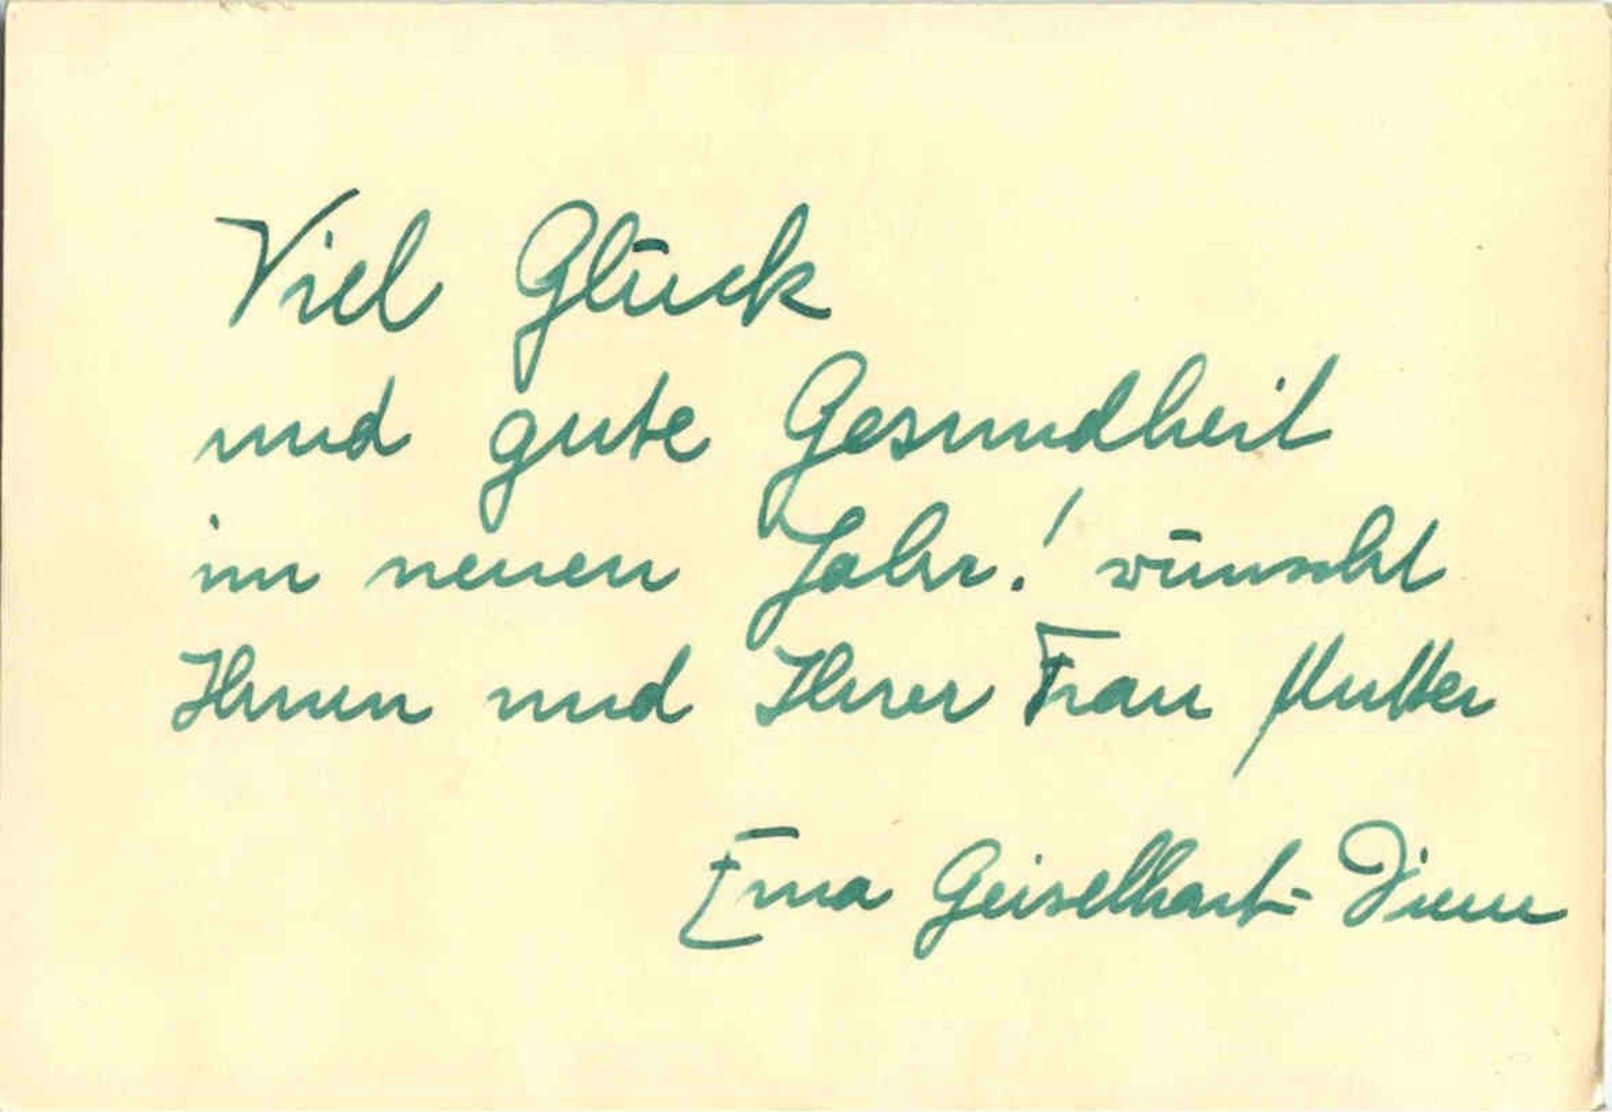 Viel Glück
und gute Gesundheit
im neuen Jahr! wünscht
Ihnen und Ihrer Frau Mutter
Erna Geiselhart-Diem